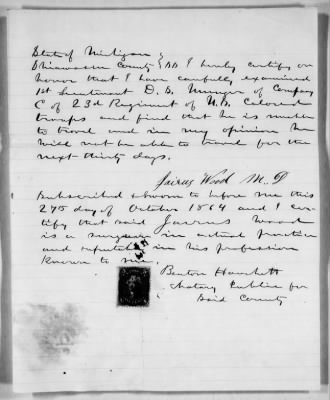 State of Michigan }
Shiawassee County } SS I hereby certify on
honor that I have carefully examined
1st Lieutenant D. D. Munger of Company
C of 23d Regiment of U.S. Colored
troops and find that he is unable
to travel and in my opinion he
will not be able to travel for the
next thirty days.
Jairus Wood M.D
Subscribed & sworn to before me this
27th day of October 1864 and I cer-
tify that said Jairus Wood
is a surgeon in actual practice
and reputable in his profession
known to me.
Benton
Notary Public for
Said County